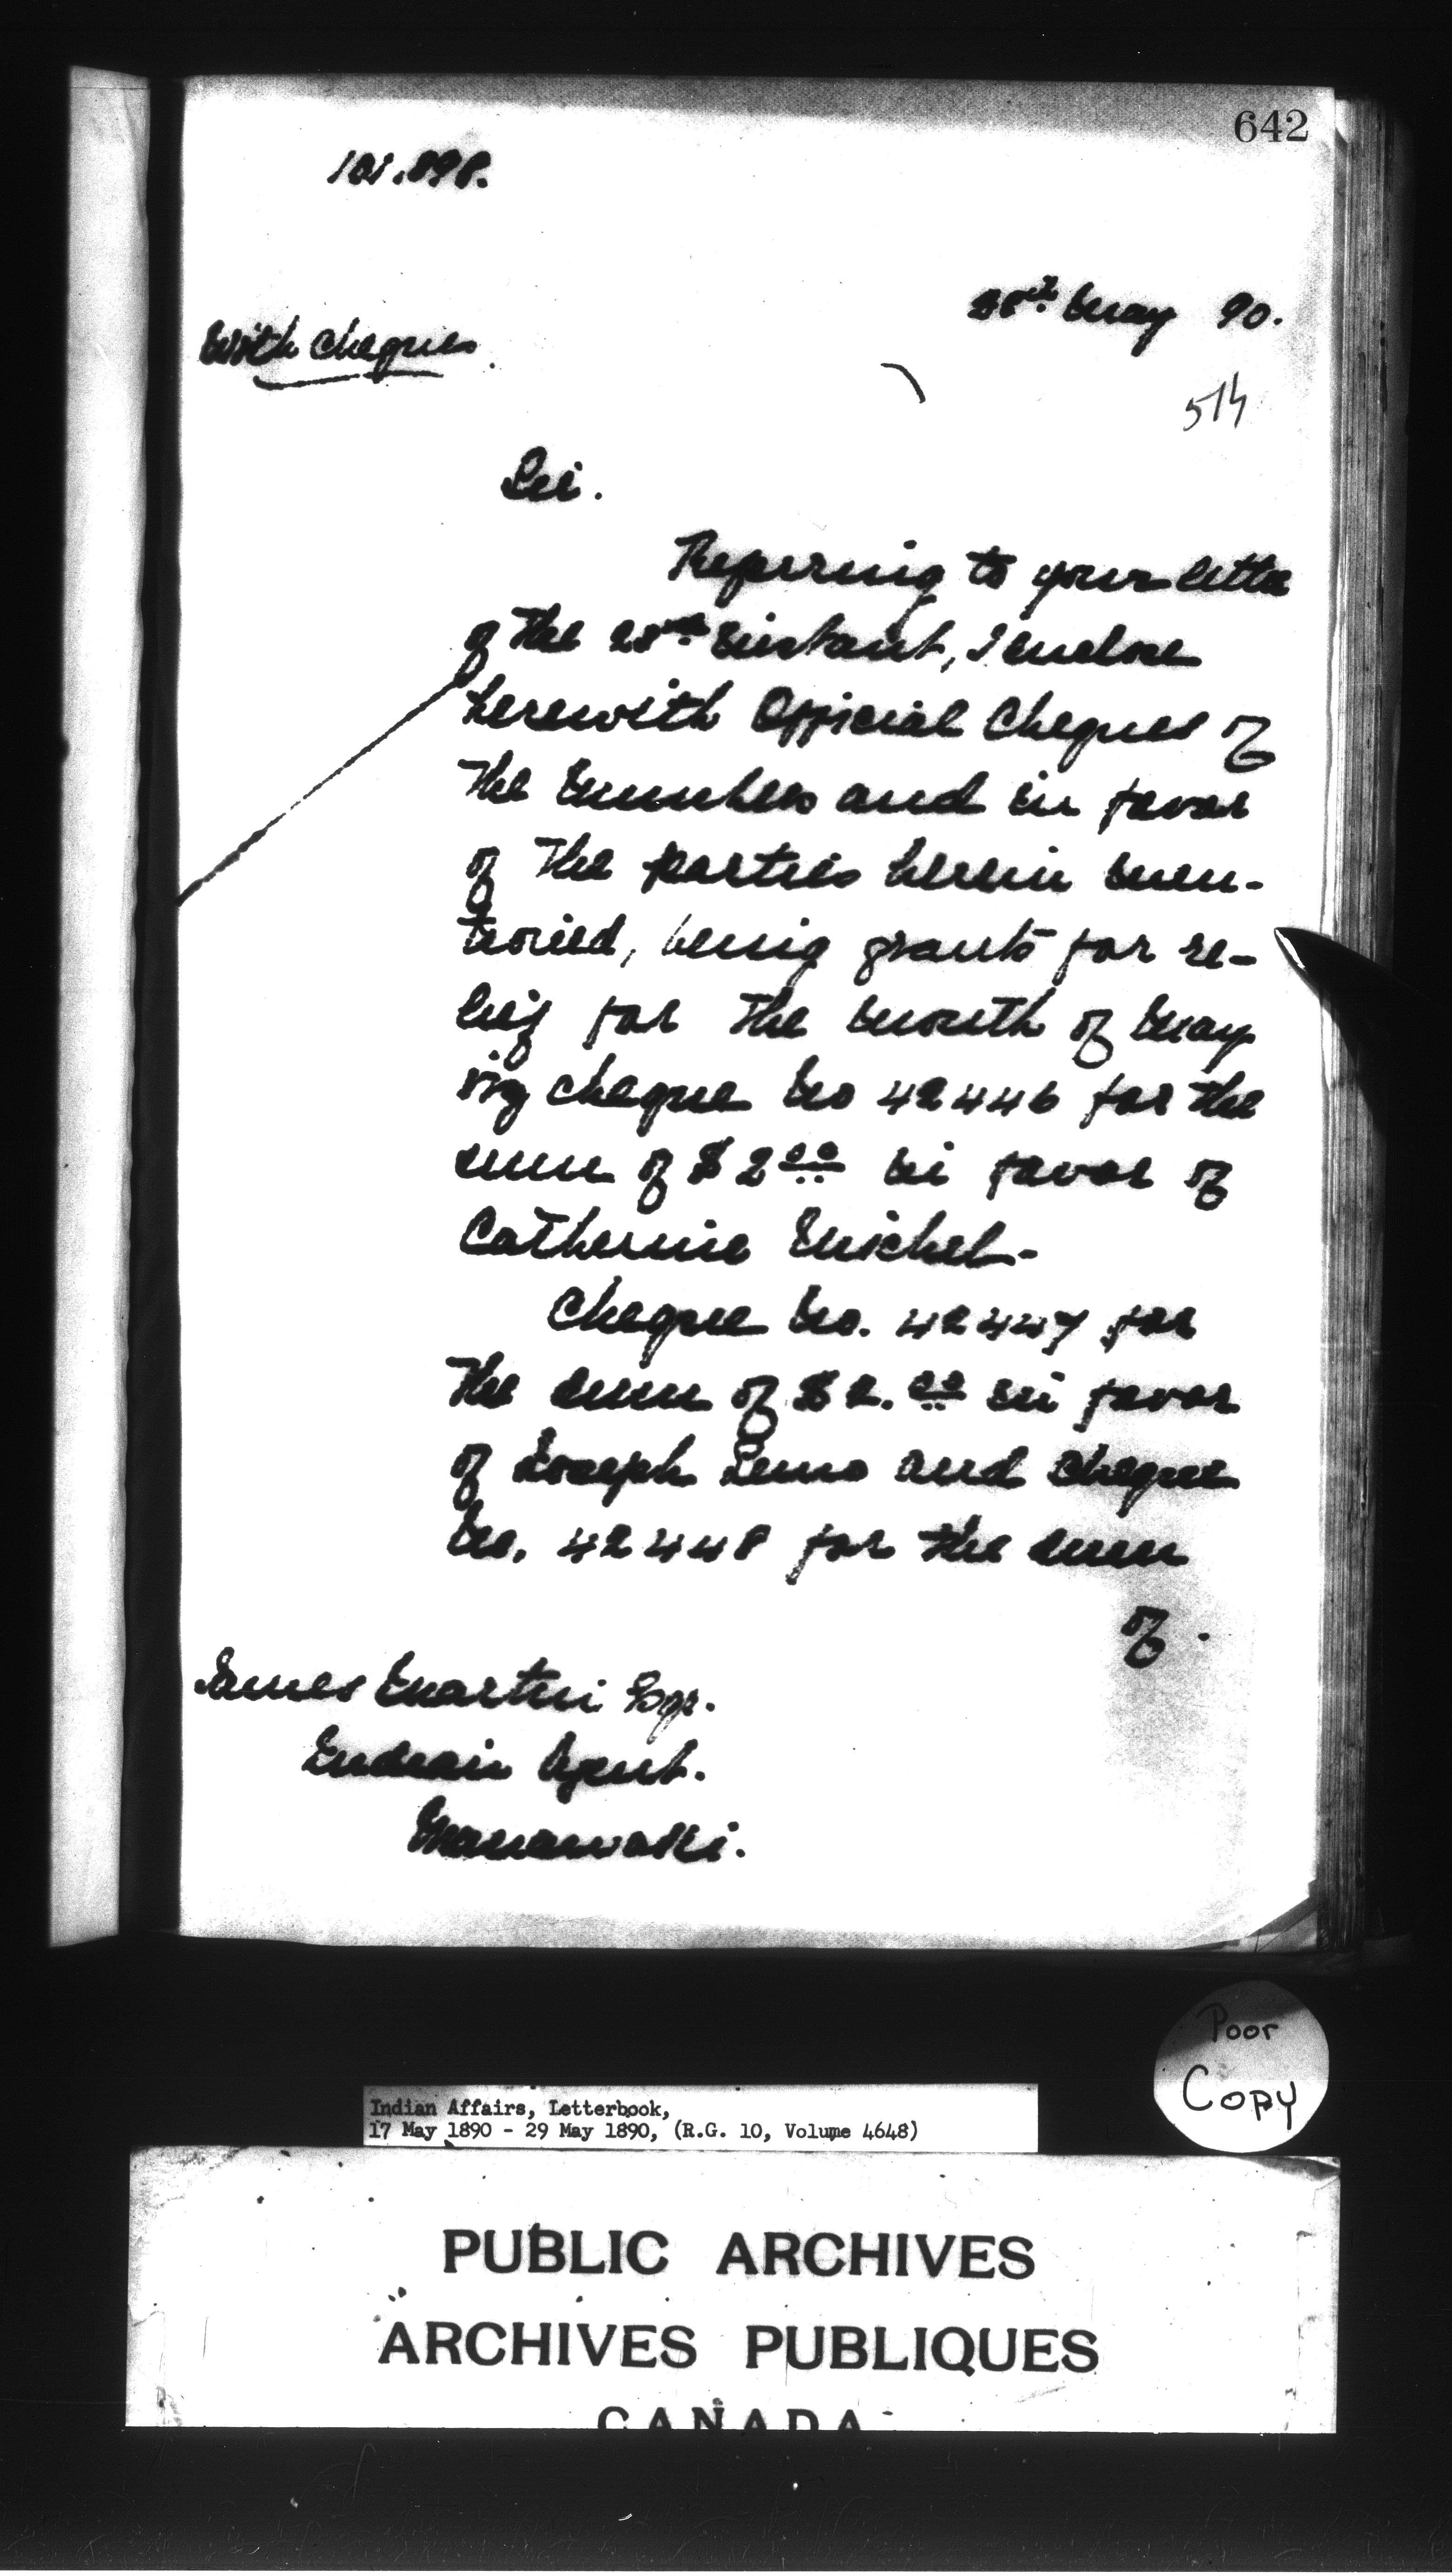 642
101.898.
28th May 90.
With cheques.
514
Sir.
Referring to your letter
of the 20th instant, I enclose
herewith Official Cheques of
the numbers and in favor
of the parties herein men-
tioned, being grants for re-
lief for the month of May
viz cheque No 42446 for the
sum of $2.00 in favor of
Catherine Michel-
Cheque No. 42447 for
the sum of $2.00 in favor
of Joseph and cheque
No. 42448 for the sum
of
James Martin Esqr.
Indian Agent.
Maniwaki.
Poor
Copy
Indian Affairs, Letterbook,
17 May 1890 - 29 May 1890, (R.G. 10, Volume 4648)
PUBLIC ARCHIVES
ARCHIVES PUBLIQUES
CANADA